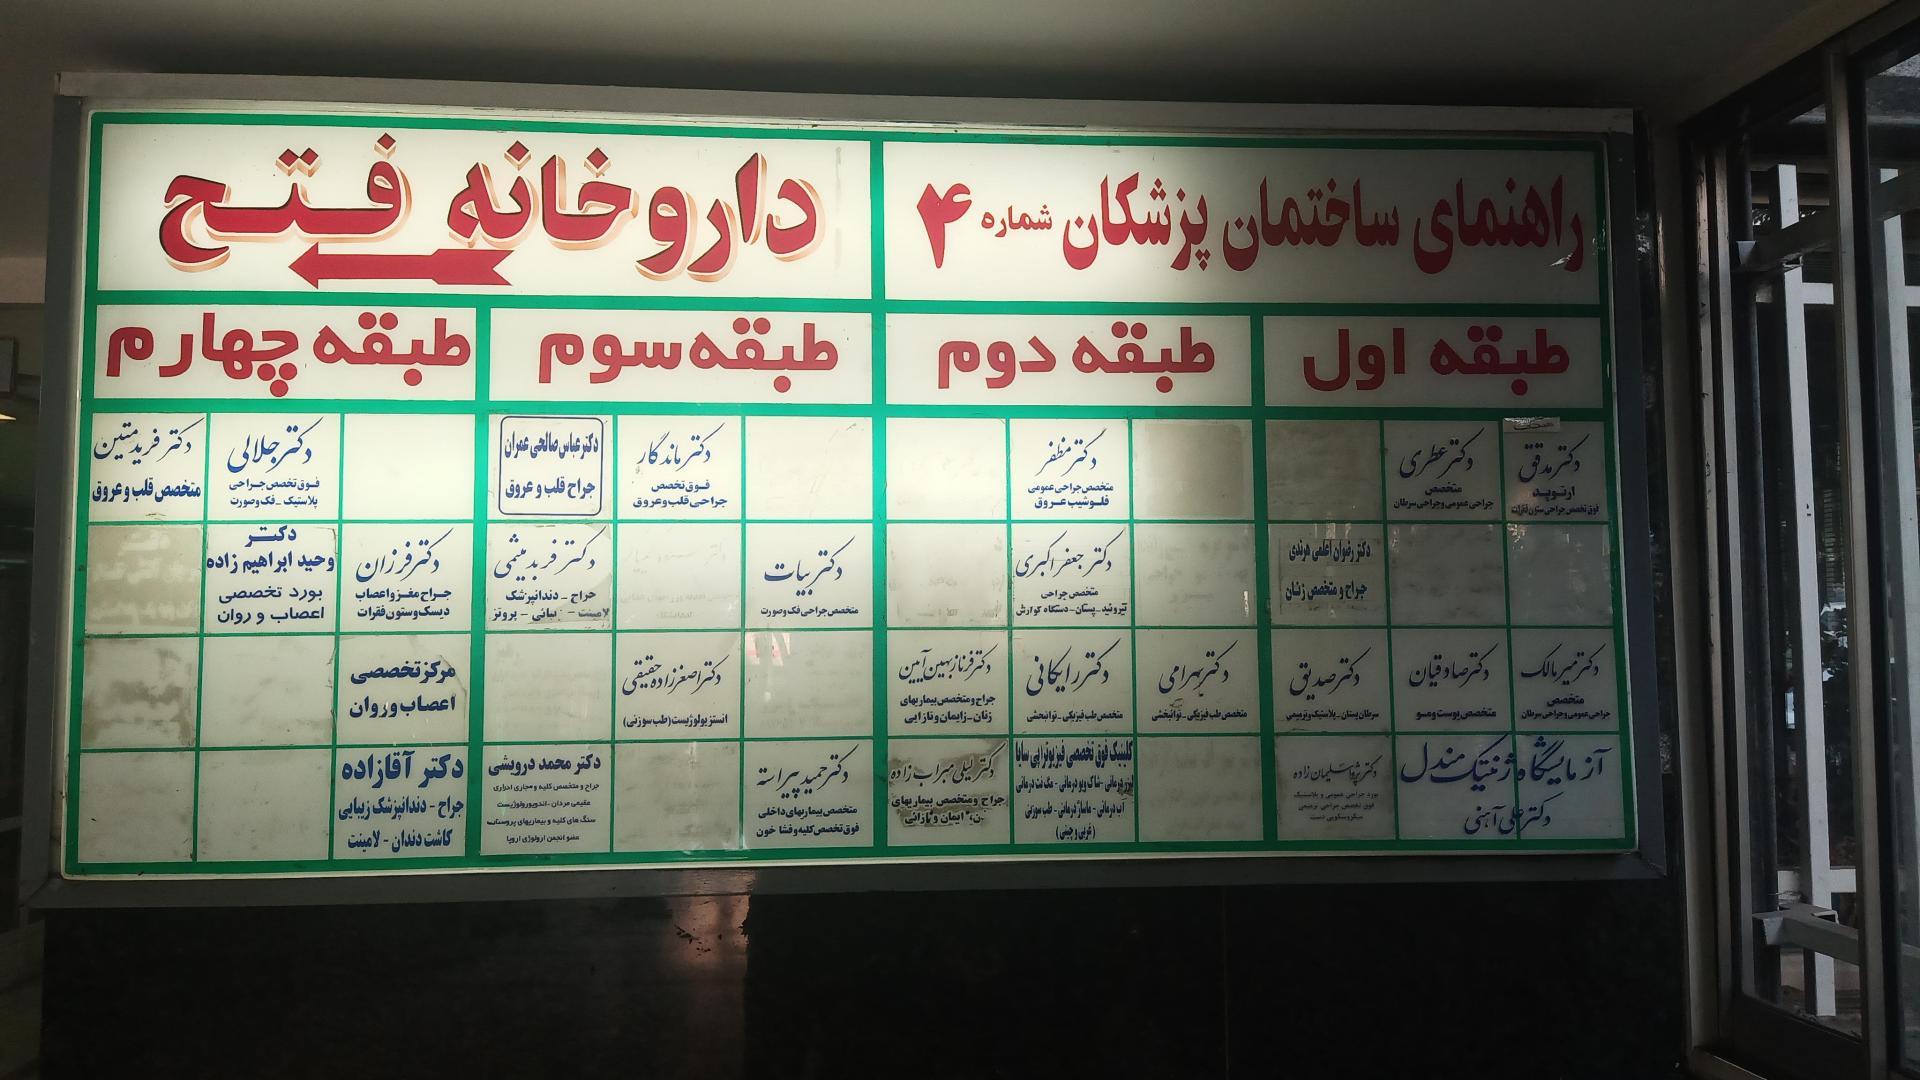 راهنمای ساختمان پزشکان شماره ۴
داروخانه فتح
طبقه اول
طبقه دوم
طبقه سوم
طبقه چهارم
دکتر مدقق
ارتوپد
فوق تخصص جراحی ستون فقرات
دکتر عطری
متخصص
جراحی عمومی و جراحی سرطان
دکتر رضوان اعلمی هرندی
جراح و متخصص زنان
دکتر میر مالک
متخصص
جراحی عمومی و جراحی سرطان
دکتر صادقیان
متخصص پوست و مو
دکتر صدیق
سرطان پستان - پلاستیک و ترمیمی
آزمایشگاه ژنتیک مندل
دکتر علی آهنی
سلیمان زاده
بورد جراحی عمومی و پلاستیک
فوق تخصص جراحی ترمیمی
میکروسکوپی دست
دکتر مظفر
متخصص جراحی عمومی
فلوشیپ عروق
دکتر جعفر اکبری
متخصص جراحی
تیروئید - پستان - دستگاه گوارش
دکتر بهرامی
متخصص طب فیزیکی - توانبخشی
دکتر رایگانی
متخصص طب فیزیکی - توانبخشی
دکتر فرناز بهین آیین
جراح و متخصص بیماریهای
زنان - زایمان و نازایی
کلینیک فوق تخصصی فیزیوتراپی سایا
لیزر درمانی - شاک ویو درمانی - مگنت درمانی
آب درمانی - ماساژ درمانی - طب سوزنی
(غربی و چینی)
دکتر لیلی مهراب زاده
جراح و متخصص بیماریهای
ایمان و نازائی
دکتر ماندگار
فوق تخصص
جراحی قلب و عروق
دکتر عباس صالحی عمران
جراح قلب و عروق
دکتر بیات
متخصص جراحی فک و صورت
دکتر فربد میثمی
جراح - دندانپزشک
لامینت - پروتز
دکتر اصغرزاده حقیقی
انستزیولوژیست (طب سوزنی)
دکتر حمید پیراسته
متخصص بیماریهای داخلی
فوق تخصص کلیه و فشا خون
دکتر محمد درویشی
جراح و متخصص کلیه و مجاری ادراری
عقیمی مردان - اندویورولوژیست
سنگ های کلیه و بیماریهای پروستات
عضو انجمن ارولوژی اروپا
دکتر جلالی
فوق تخصص جراحی
پلاستیک - فک و صورت
دکتر فرید متین
متخصص قلب و عروق
دکتر فرزان
جراح مغز و اعصاب
دیسک و ستون فقرات
دکتر
وحید ابراهیم زاده
بورد تخصصی
اعصاب و روان
مرکز تخصصی
اعصاب و روان
دکتر آقازاده
جراح - دندانپزشک زیبایی
کاشت دندان - لامینت